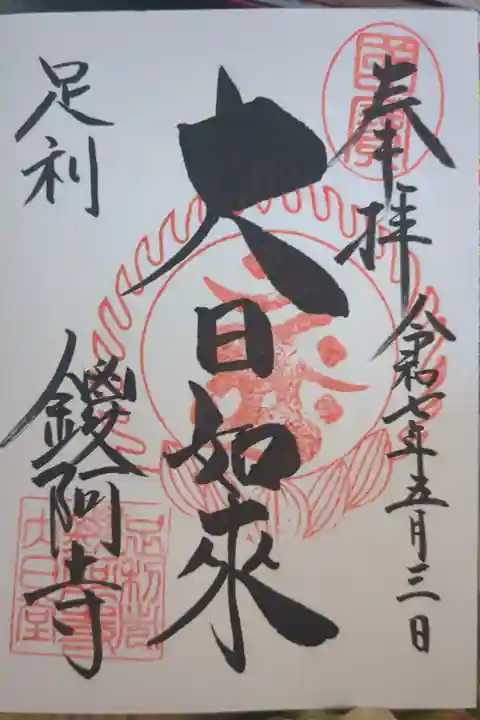 奉拝
令和七年五月三日
國寶
大日如來
足利
鑁阿寺